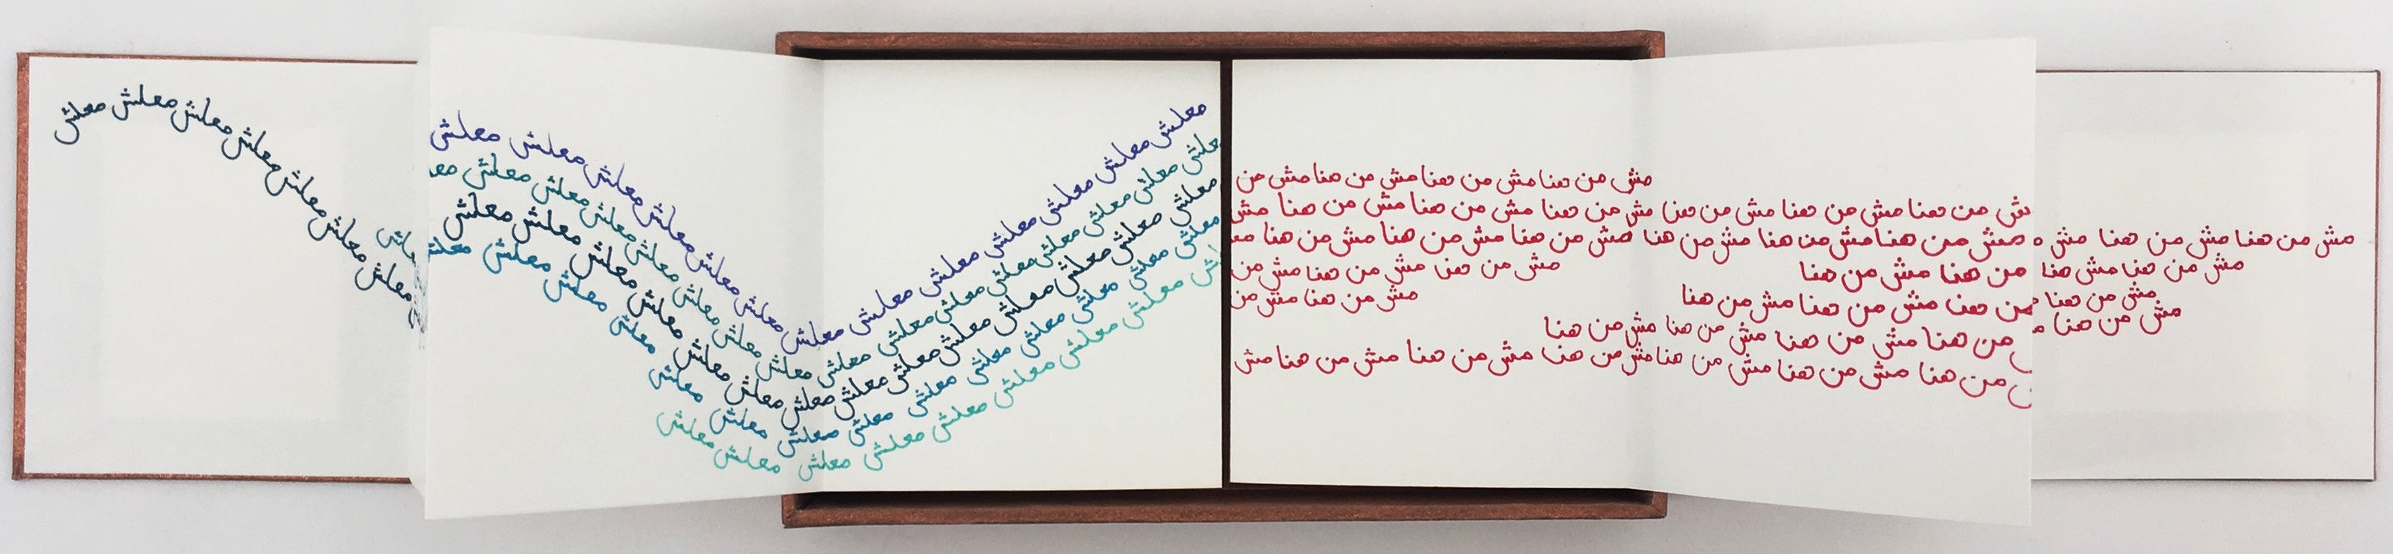 مش من هنا مش من هنا مش من هنا مش من
ش من هنا مش من هنا مش من هنا مش من هنا مش من هنا مش من هنا مش
مش من هنا مش من هنا مش مش من هنا مش من هنا مش من هنا مش من هنا مش من هنا مش من هنا مش
مش من هنا مش هنا من هنا مش من هنا مش من هنا مش من هنا مش من
مش من هنا من هنا مش من هنا مش من هنا مش من هنا مش من
مش من هنا من هنا مش من هنا مش من هنا مش من هنا
من هنا مش من هنا مش من هنا مش من هنا مش من هنا مش من هنا مش
معلش معلش معلش معلش معلش معلش معلش معلش معلش معلش معلش معلش معلش
معلش معلش معلش معلش معلش معلش معلش معلش معلش معلش معلش معلش معلش معلش معلش
معلش معلش معلش معلش معلش معلش معلش معلش معلش معلش معلش معلش معلش معلش
معلش معلش معلش معلش معلش معلش معلش معلش معلش معلش معلش معلش معلش معلش
معلش معلش معلش معلش معلش معلش معلش معلش
معلش معلش معلش معلش معلش معلش معلش